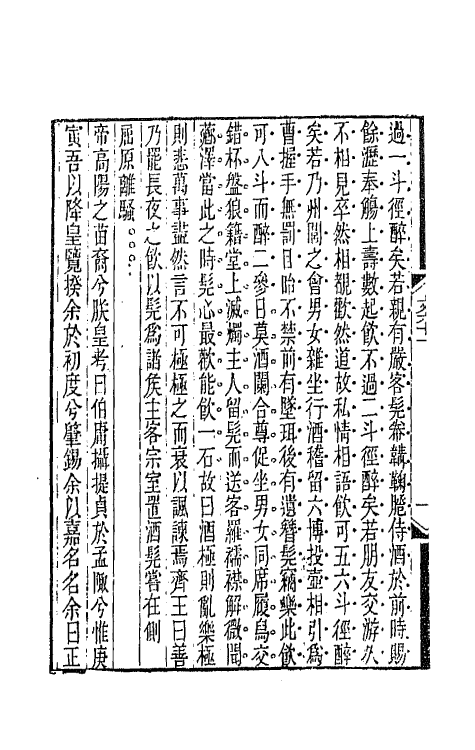 過一斗徑醉矣若親有嚴客髡帣韝鞠䠆侍酒於前時賜
餘瀝奉觴上壽數起飲不過二斗徑醉矣若朋友交游久
不相見卒然相覩歡然道故私情相語飲可五六斗徑醉
矣若乃州閭之會男女雜坐行酒稽留六博投壺相引為
曹握手無罰目眙不禁前有墜珥後有遺簪髡竊樂此飲
可八斗而醉二參日莫酒闌合尊促坐男女同席履舄交
錯杯盤狼籍堂上滅燭主人留髡而送客羅襦襟解微聞
薌澤當此之時髡心最歡能飲一石故曰酒極則亂樂極
則悲萬事盡然言不可極極之而衰以諷諫焉齊王曰善
乃罷長夜之飲以髡為諸矦主客宗室置酒髡嘗在側
屈原離騷
帝高陽之苗裔兮朕皇考曰伯庸攝提貞於孟陬兮惟庚
寅吾以降皇覽揆余於初度兮肇錫余以嘉名名余曰正